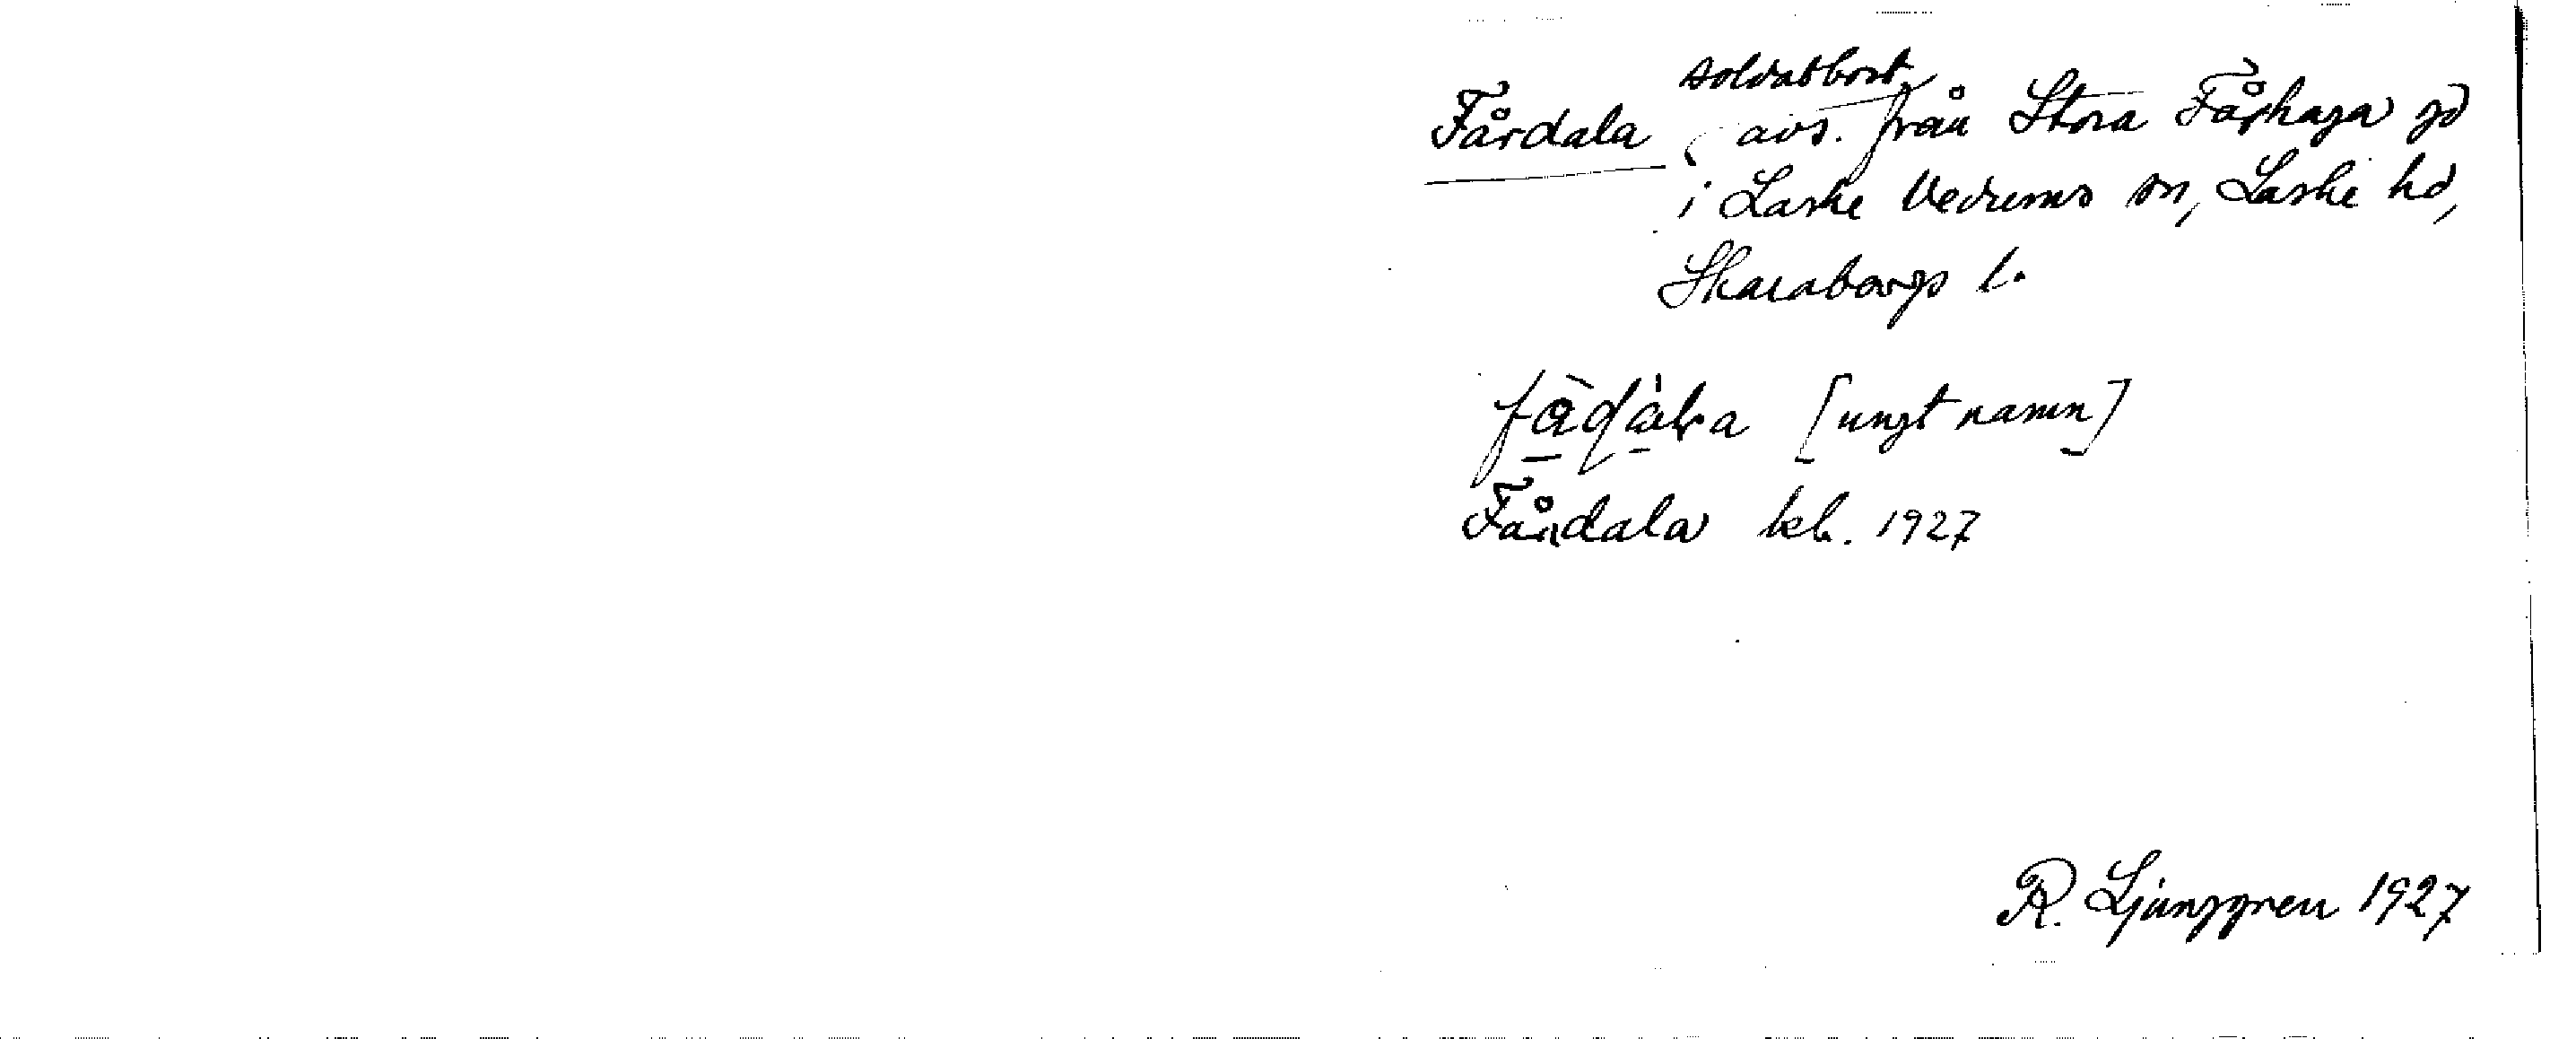 soldatbost.
Fårdala, avs. från Stora Fårhaga gd
i Laske Vedums sn, Laske hd,
Skaraborgs l.
[ungt namn]
Fårdala kb. 1927
R. Ljunggren 1927